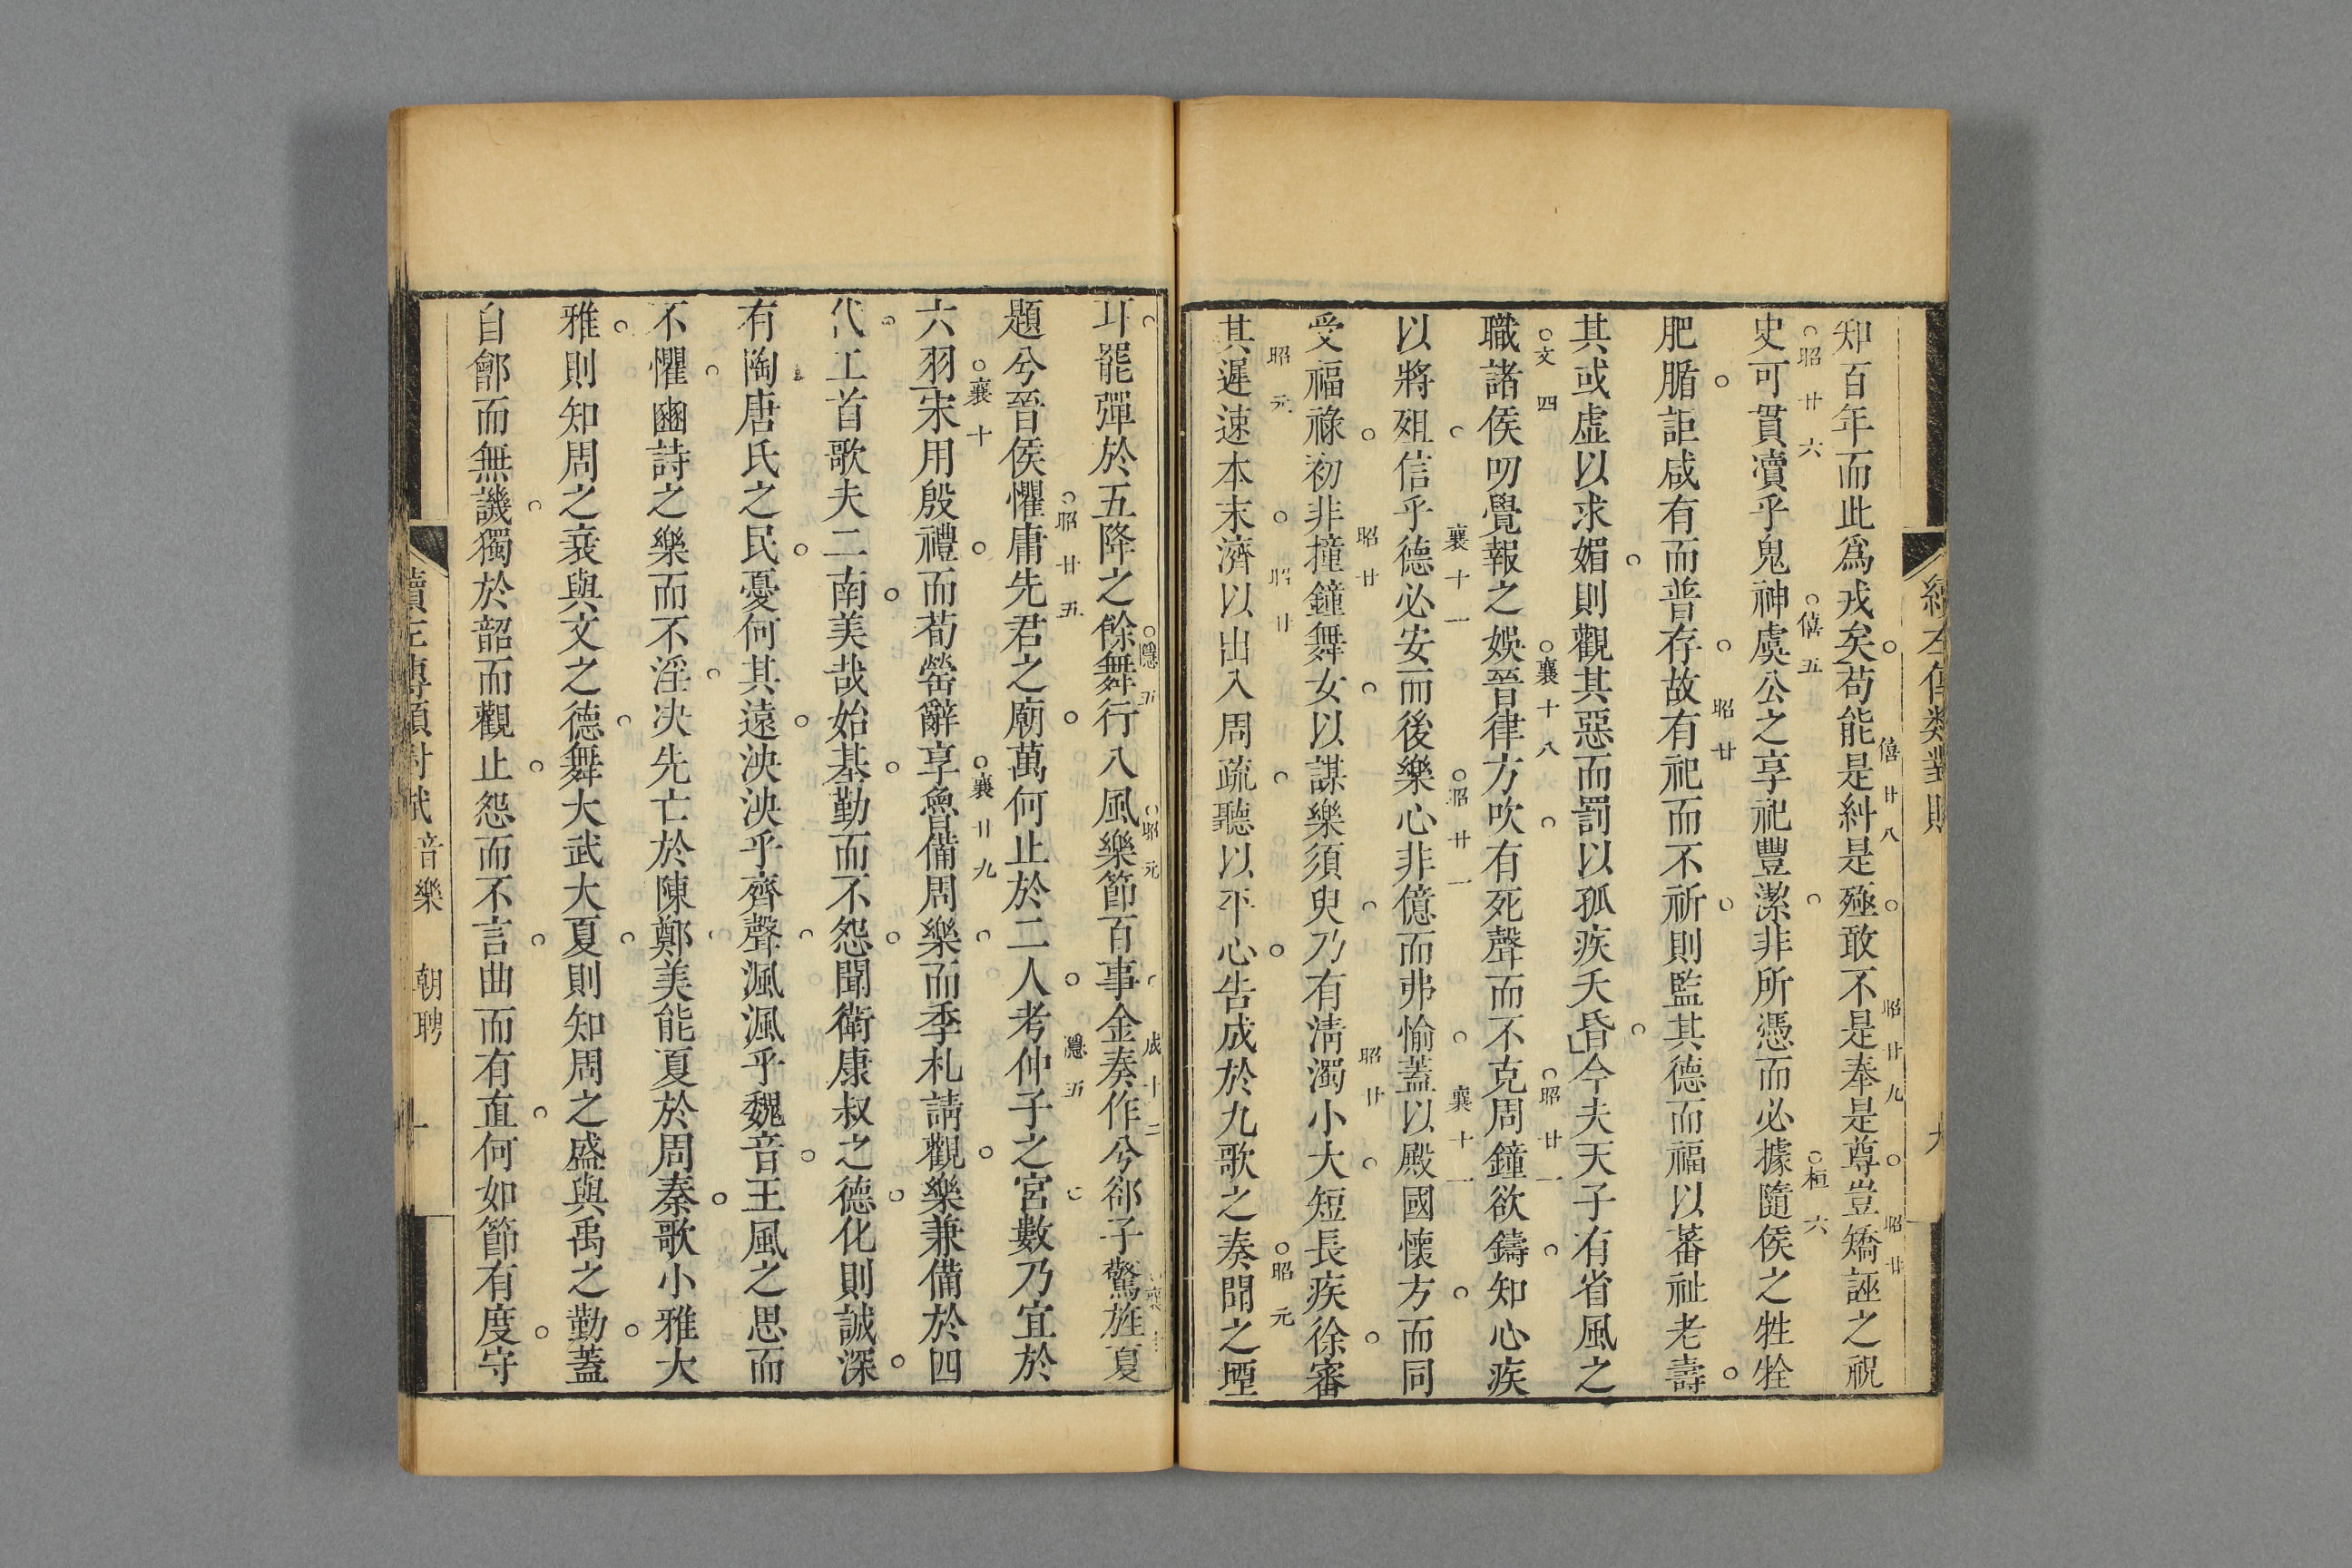 知百年而此爲戎矣苟能是糾是殛敢不是奉是尊豈矯誣之祝
僖廿八 昭廿九 昭廿
史可貫瀆乎鬼神虞公之享祀豐潔非所憑而必據隨侯之牲牷
昭廿六 僖五 桓六
肥腯詎咸有而普存故有祀而不祈則監其德而福以蕃祉老壽
昭廿
其或虛以求媚則觀其惡而罰以孤疾夭昏今夫天子有省風之
職諸侯叨覺報之娛晉律方吹有死聲而不克周鐘欲鑄知心疾
文四 襄十八 昭廿一
以將殂信乎德必安而後樂心非億而弗愉蓋以殿國懷方而同
襄十一 昭廿一 襄十一
受福祿初非撞鐘舞女以謀樂須臾乃有淸濁小大短長疾徐審
昭廿 昭廿
其遲速本末濟以出入周疏聽以平心告成於九歌之奏閒之堙
昭元 昭廿 昭元
耳罷彈於五降之餘舞行八風樂節百事金奏作兮郤子驚旌夏
隱五 昭元 成十二 襄十
題兮晉侯懼庸先君之廟萬何止於二人考仲子之宮數乃宜於
昭廿五 隱五
六羽宋用殷禮而荀罃辭享魯備周樂而季札請觀樂兼備於四
襄十 襄廿九
代工首歌夫二南美哉始基勤而不怨聞衛康叔之德化則誠深
有陶唐氏之民憂何其遠泱泱乎齊聲渢渢乎魏音王風之思而
不懼豳詩之樂而不淫決先亡於陳鄭美能夏於周秦歌小雅大
雅則知周之衰與文之德舞大武大夏則知周之盛與禹之勤蓋
自鄶而無譏獨於韶而觀止怨而不言曲而有直何如節有度守
續左傳類對賦 音樂 朝聘